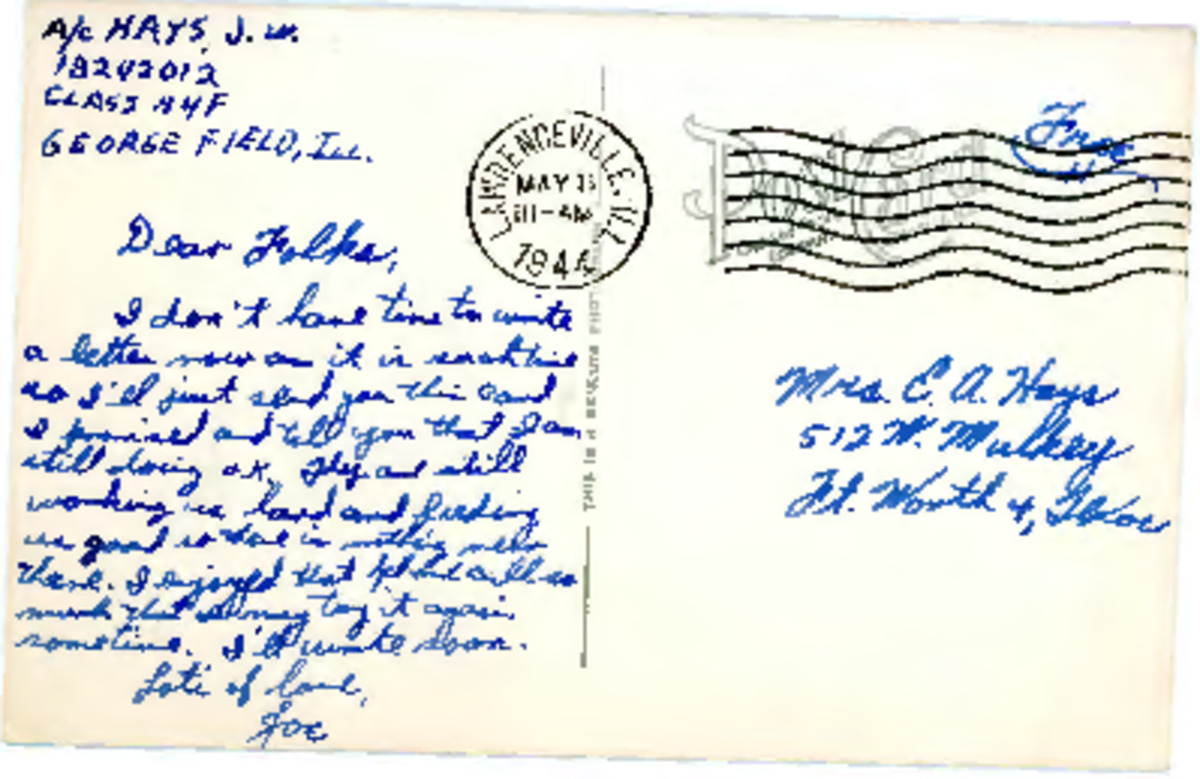 A/c HAYS, J. W.
18242012
CLASS 44F
GEORGE FIELD, ILL.
LAWRENCEVILLE, ILL.
MAY
11-AM
1944
Post Card
Free
Dear Folks,
I don't have time to write
a letter now as it is
so I'll just send you this card
I promised and tell you that I am
still doing o.k. They are still
working us hard and feeding
us good so there is nothing new
there. I enjoyed that phone call so
much that I may try it again
sometime. I'll write soon.
Lots of love,
Joe
THIS IS A GENUINE PHOTO
Mrs. E. A. Hays
512 W. Mulkey
Ft. Worth 4, Texas